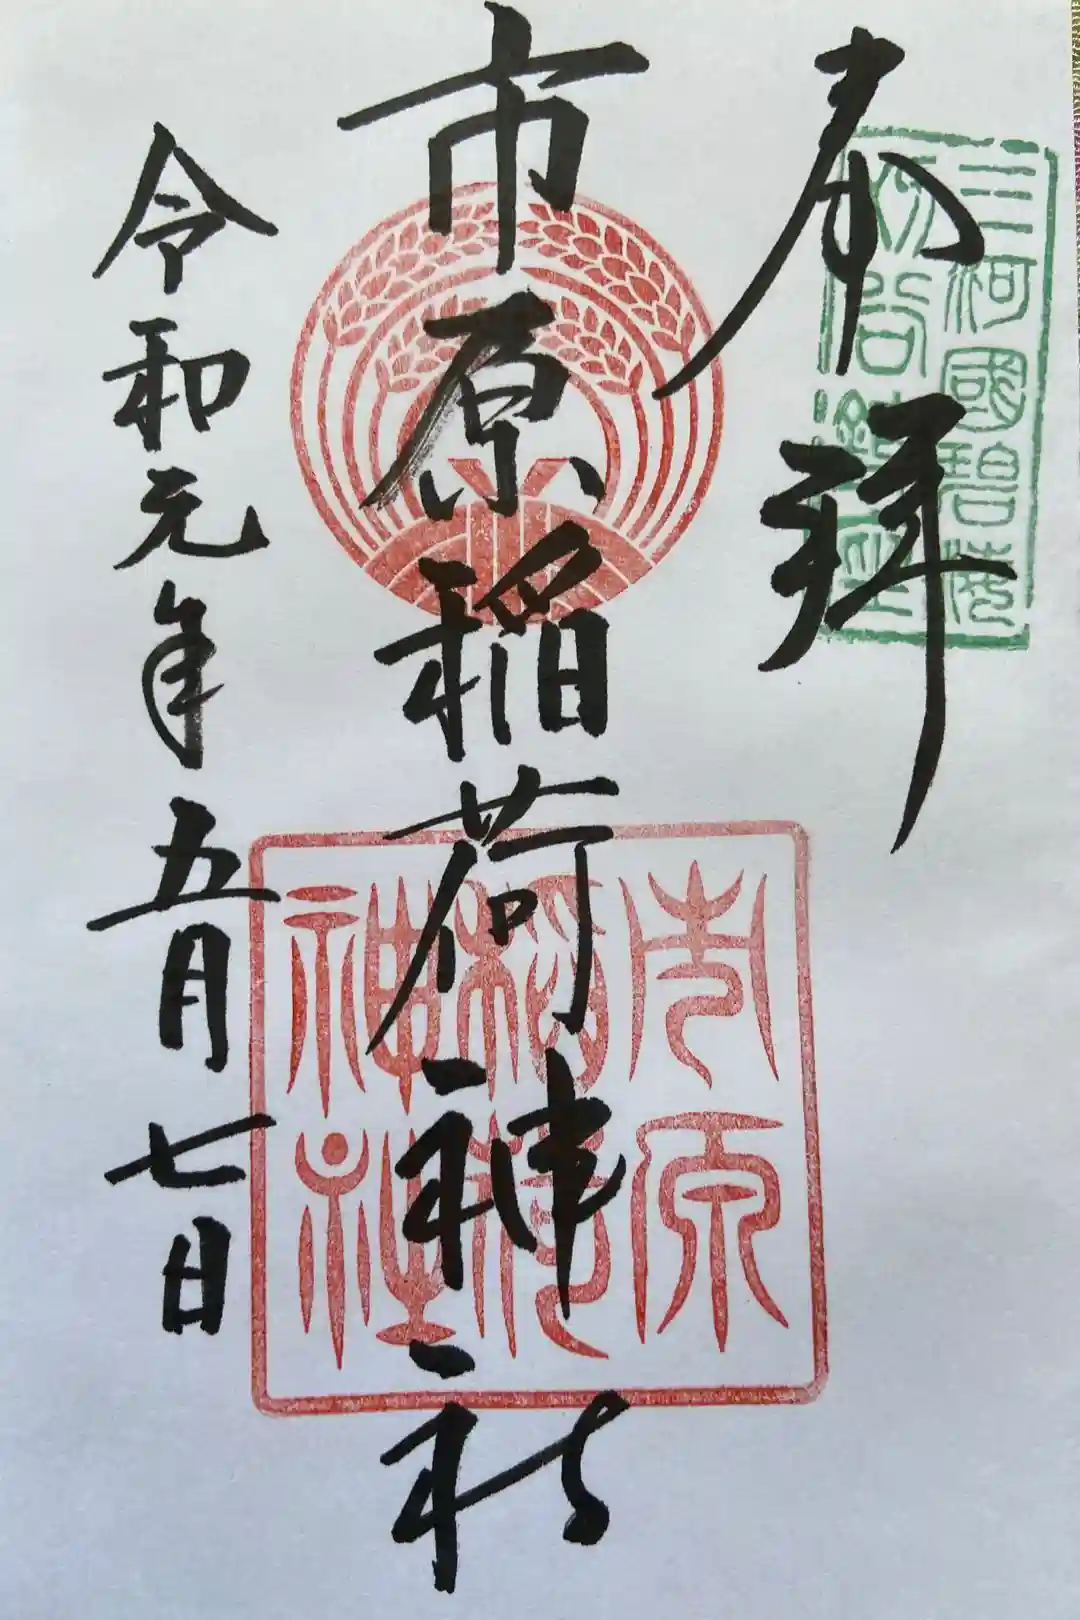 奉拝
三河國碧海
刈谷鎮座
市原稲荷神社
市原
稲荷
神社
令和元年五月七日